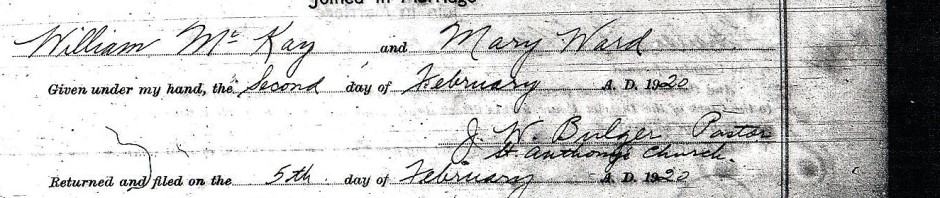 Joined in Marriage
William Mc Kay and Mary Ward
Given under my hand, the Second day of February A. D. 1920
J. W. Bulger Pastor
St Anthonys Church.
Returned and filed on the 5th day of February A. D. 1920